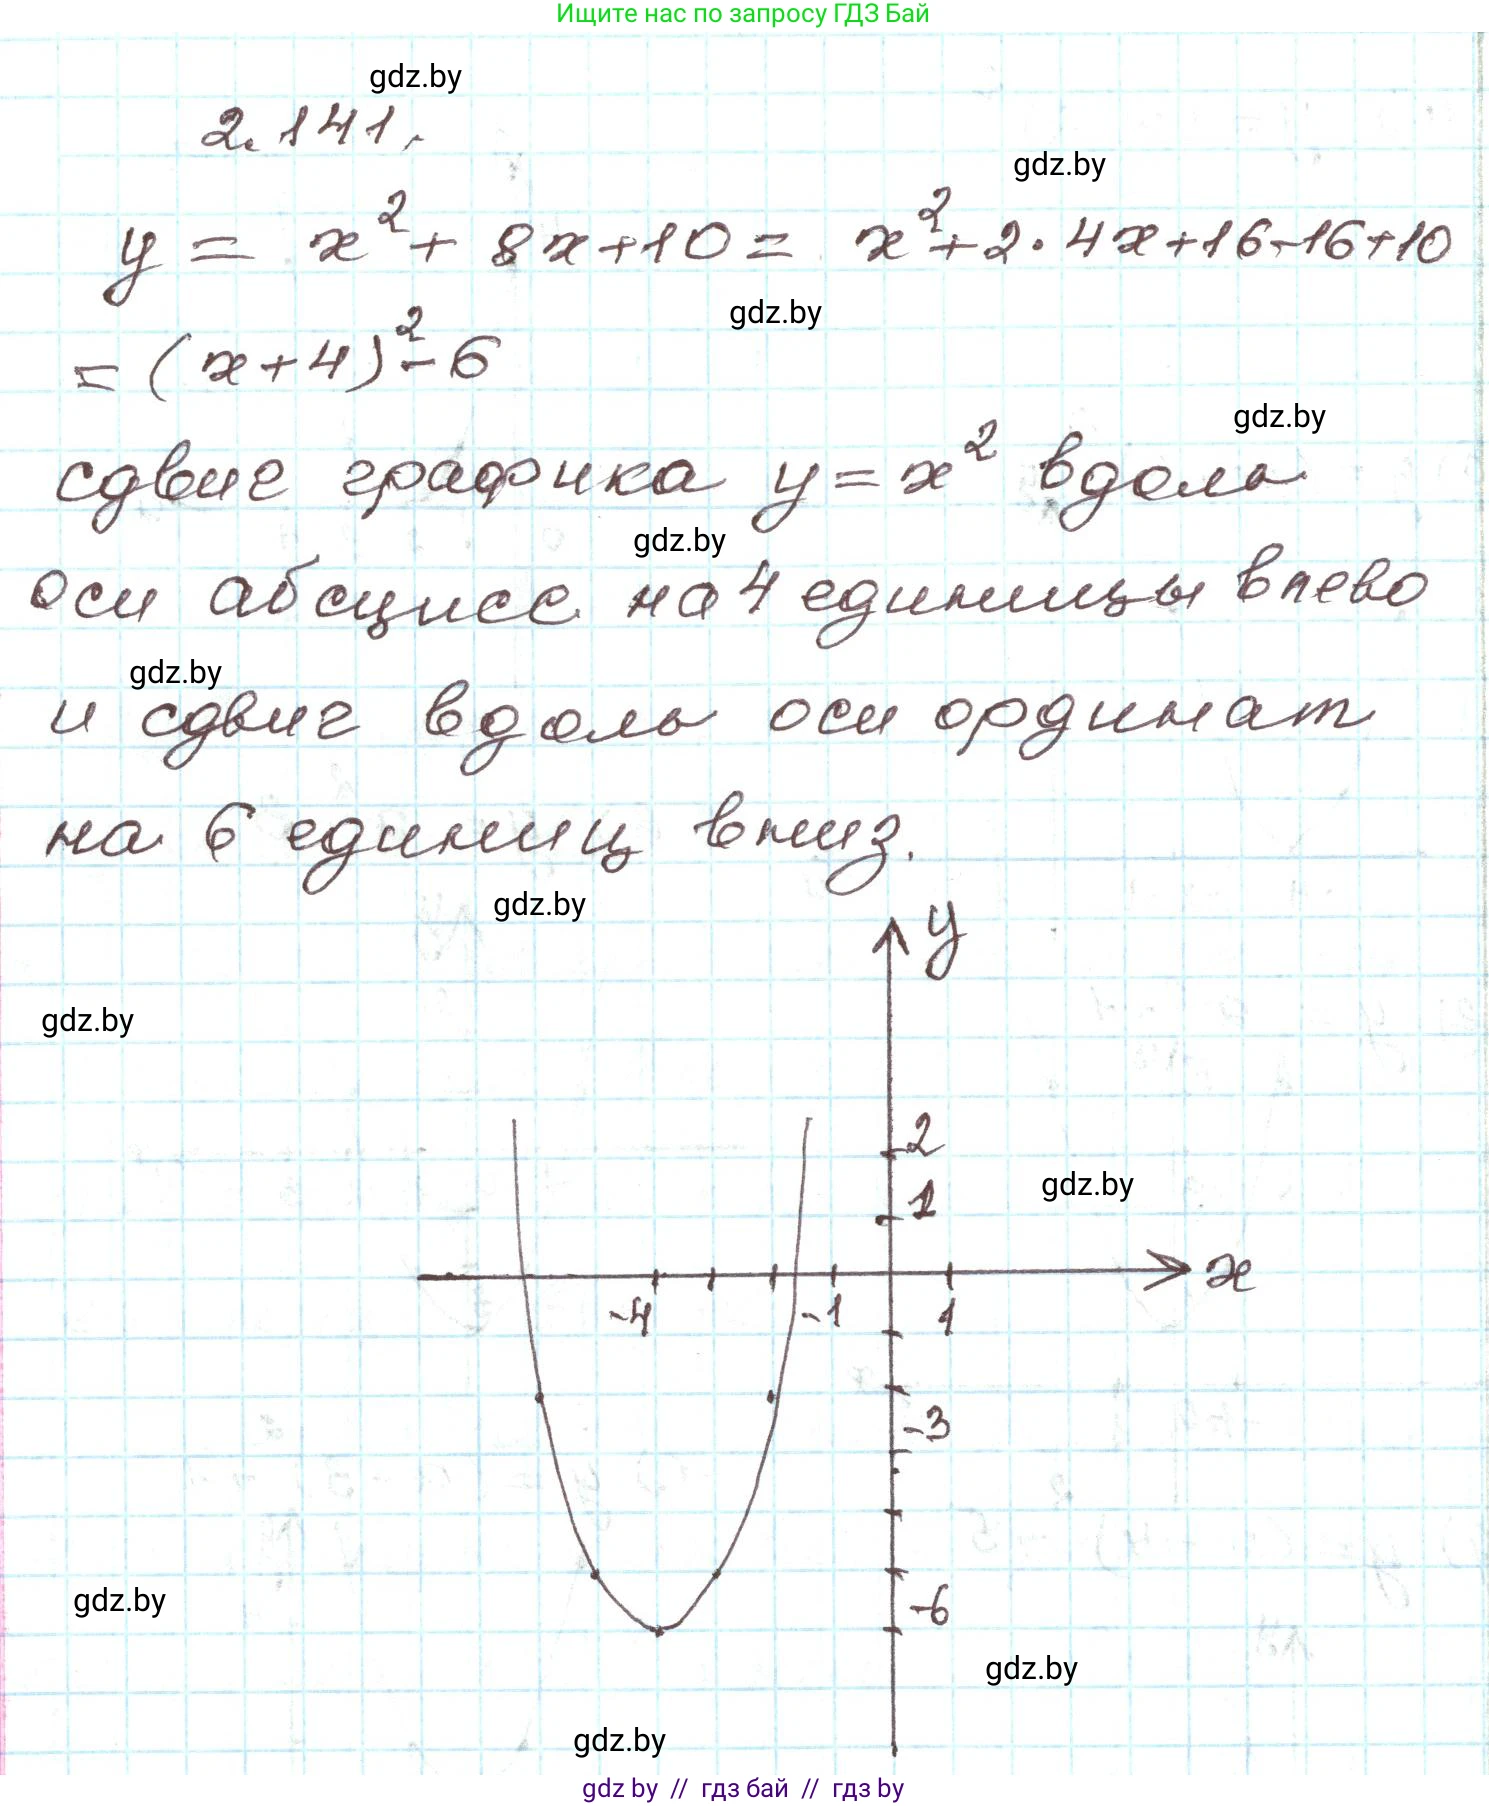 Ищите нас по запросу ГДЗ Бай
gdz.by
2.141.
gdz.by
y = x² + 8x+10 = x²+2·4x+16-16+10
gdz.by
= (x+4)²-6
gdz.by
сдвиг графика y=x² вдоль
gdz.by
оси абсцисс на 4 единицы влево
gdz.by
и сдвиг вдоль оси ординат
на 6 единиц вниз.
gdz.by
y
gdz.by
2
gdz.by
1
x
-4
-1
1
-3
gdz.by
-6
gdz.by
gdz.by
gdz by // гдз бай // гдз by